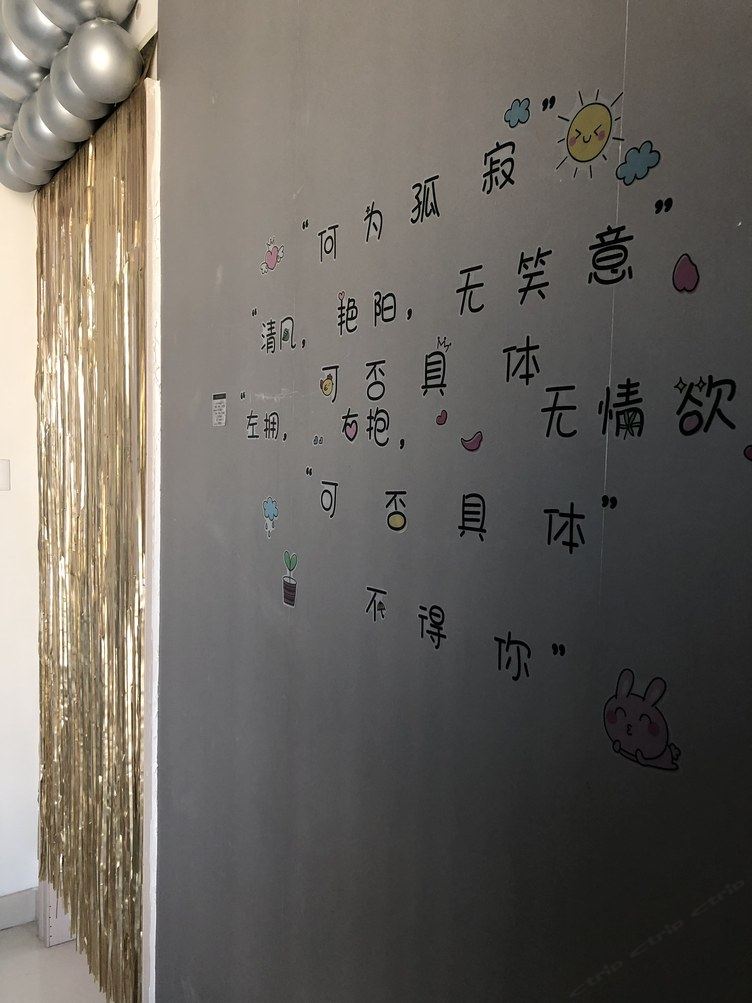 “何为孤寂”
“清风,艳阳,无笑意”
可否具体
“左拥,右抱,无情欲
“可否具体”
不得你”
ctrip ctrip ctrip